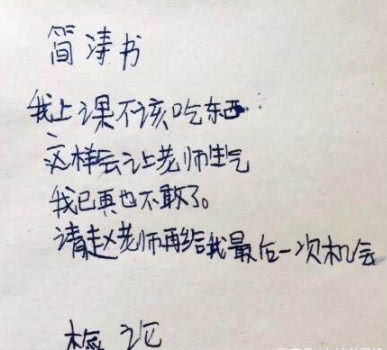 简涛书
我上课不该吃东西
这样会让老师生气
我已真也不敢了。
请赵老师再给我最后一次机会